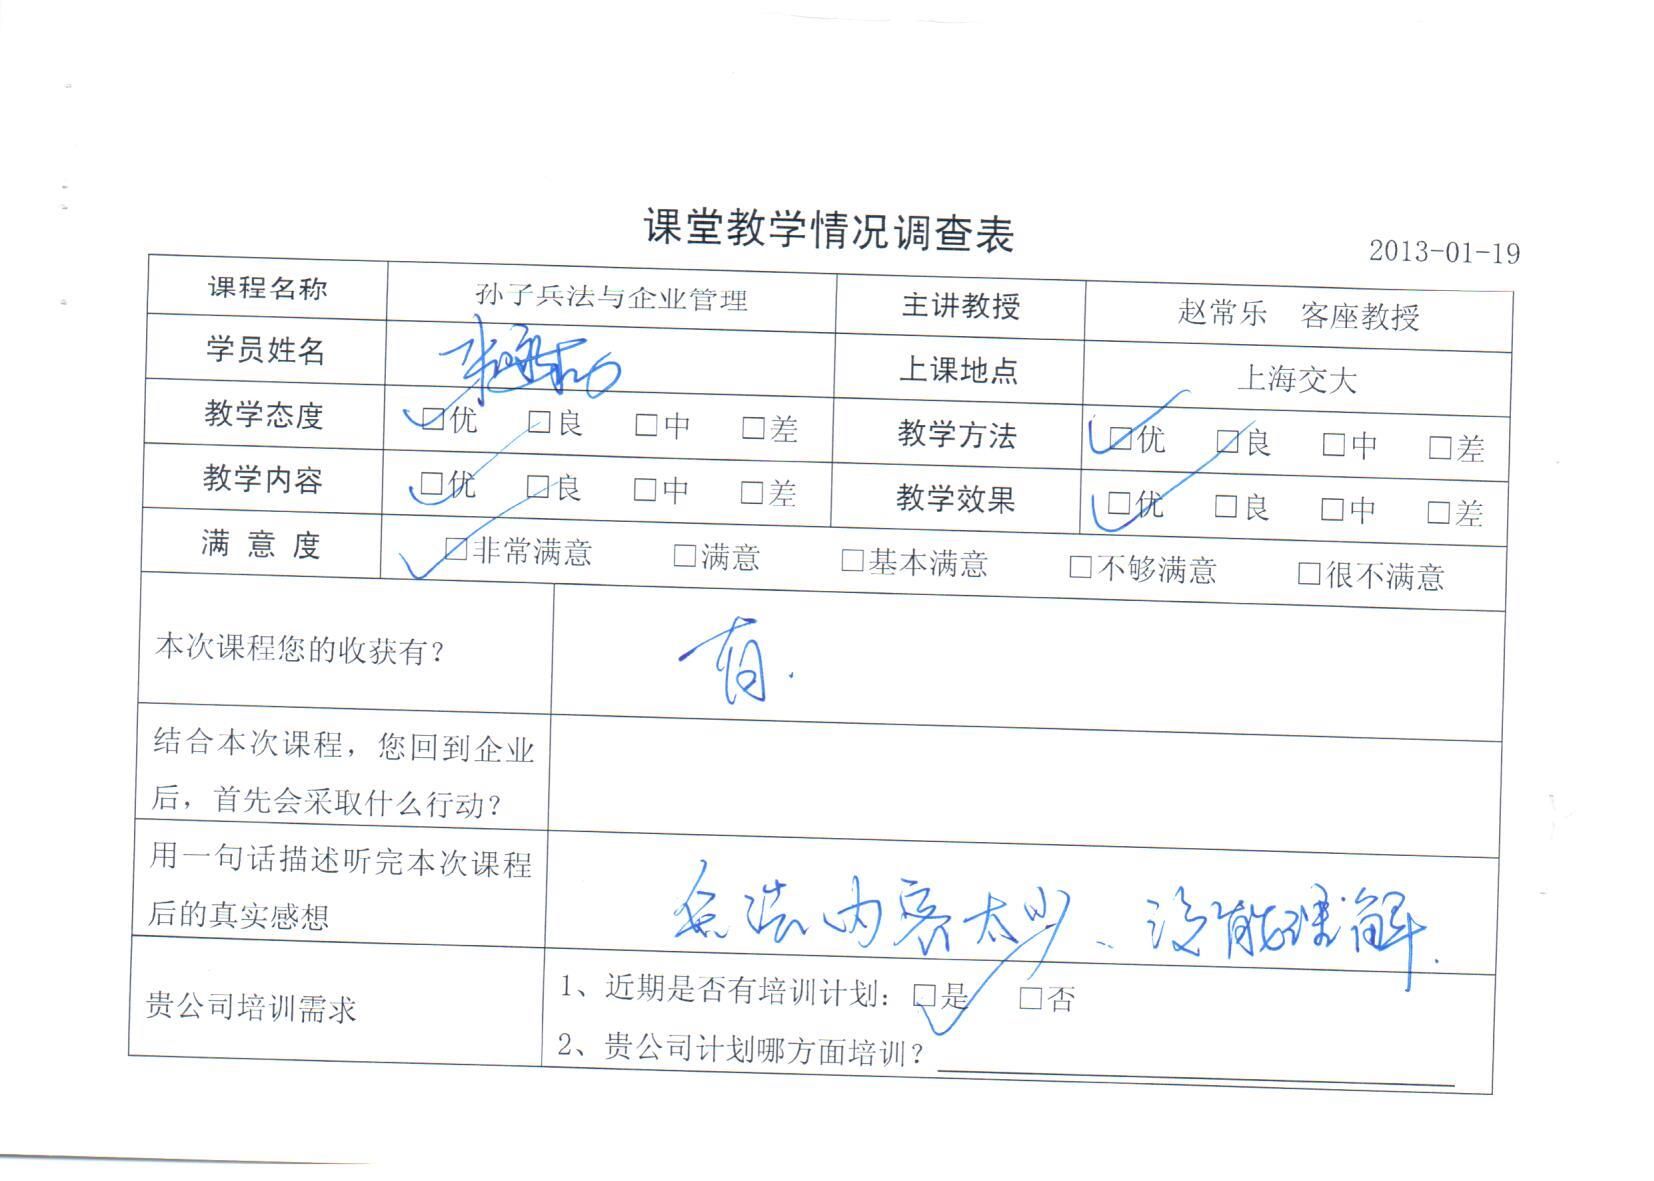 课堂教学情况调查表
2013-01-19
课程名称 孙子兵法与企业管理 主讲教授 赵常乐 客座教授
学员姓名 上课地点 上海交大
教学态度 □优 □良 □中 □差 教学方法 □优 □良 □中 □差
教学内容 □优 □良 □中 □差 教学效果 □优 □良 □中 □差
满意度 □非常满意 □满意 □基本满意 □不够满意 □很不满意
本次课程您的收获有? 有.
结合本次课程，您回到企业
后，首先会采取什么行动?
用一句话描述听完本次课程
后的真实感想
兵法内容太少、没能理解.
贵公司培训需求
1、近期是否有培训计划: □是 □否
2、贵公司计划哪方面培训?